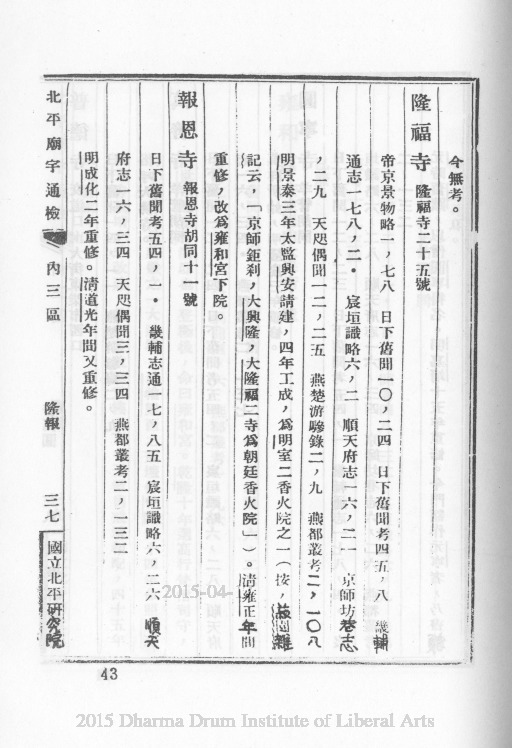 今無考。
隆福寺 隆福寺二十五號
帝京景物略一,七八 日下舊聞一〇,二四 日下舊聞考四五,八 畿輔
通志一七八,二。 宸垣識略六,二 順天府志一六,二一 京師坊巷志
,二九 天咫偶聞一二,二五 燕楚游驂錄二,九 燕都叢考二,一〇八
明景泰三年太監興安請建,四年工成,爲明室二香火院之一(按,菽園雜
記云,「京師鉅刹,大興隆,大隆福二寺爲朝廷香火院」)。清雍正年間
重修,改爲雍和宮下院。
報恩寺 報恩寺胡同十一號
日下舊聞考五四,一。 畿輔志通一七,八五 宸垣識略六,二六 順天
府志一六,三四 天咫偶聞三,三四 燕都叢考二,一三二
明成化二年重修。清道光年間又重修。
北平廟宇通檢 內三區 隆報 三七 國立北平研究院
43
2015-04-
2015 Dharma Drum Institute of Liberal Arts